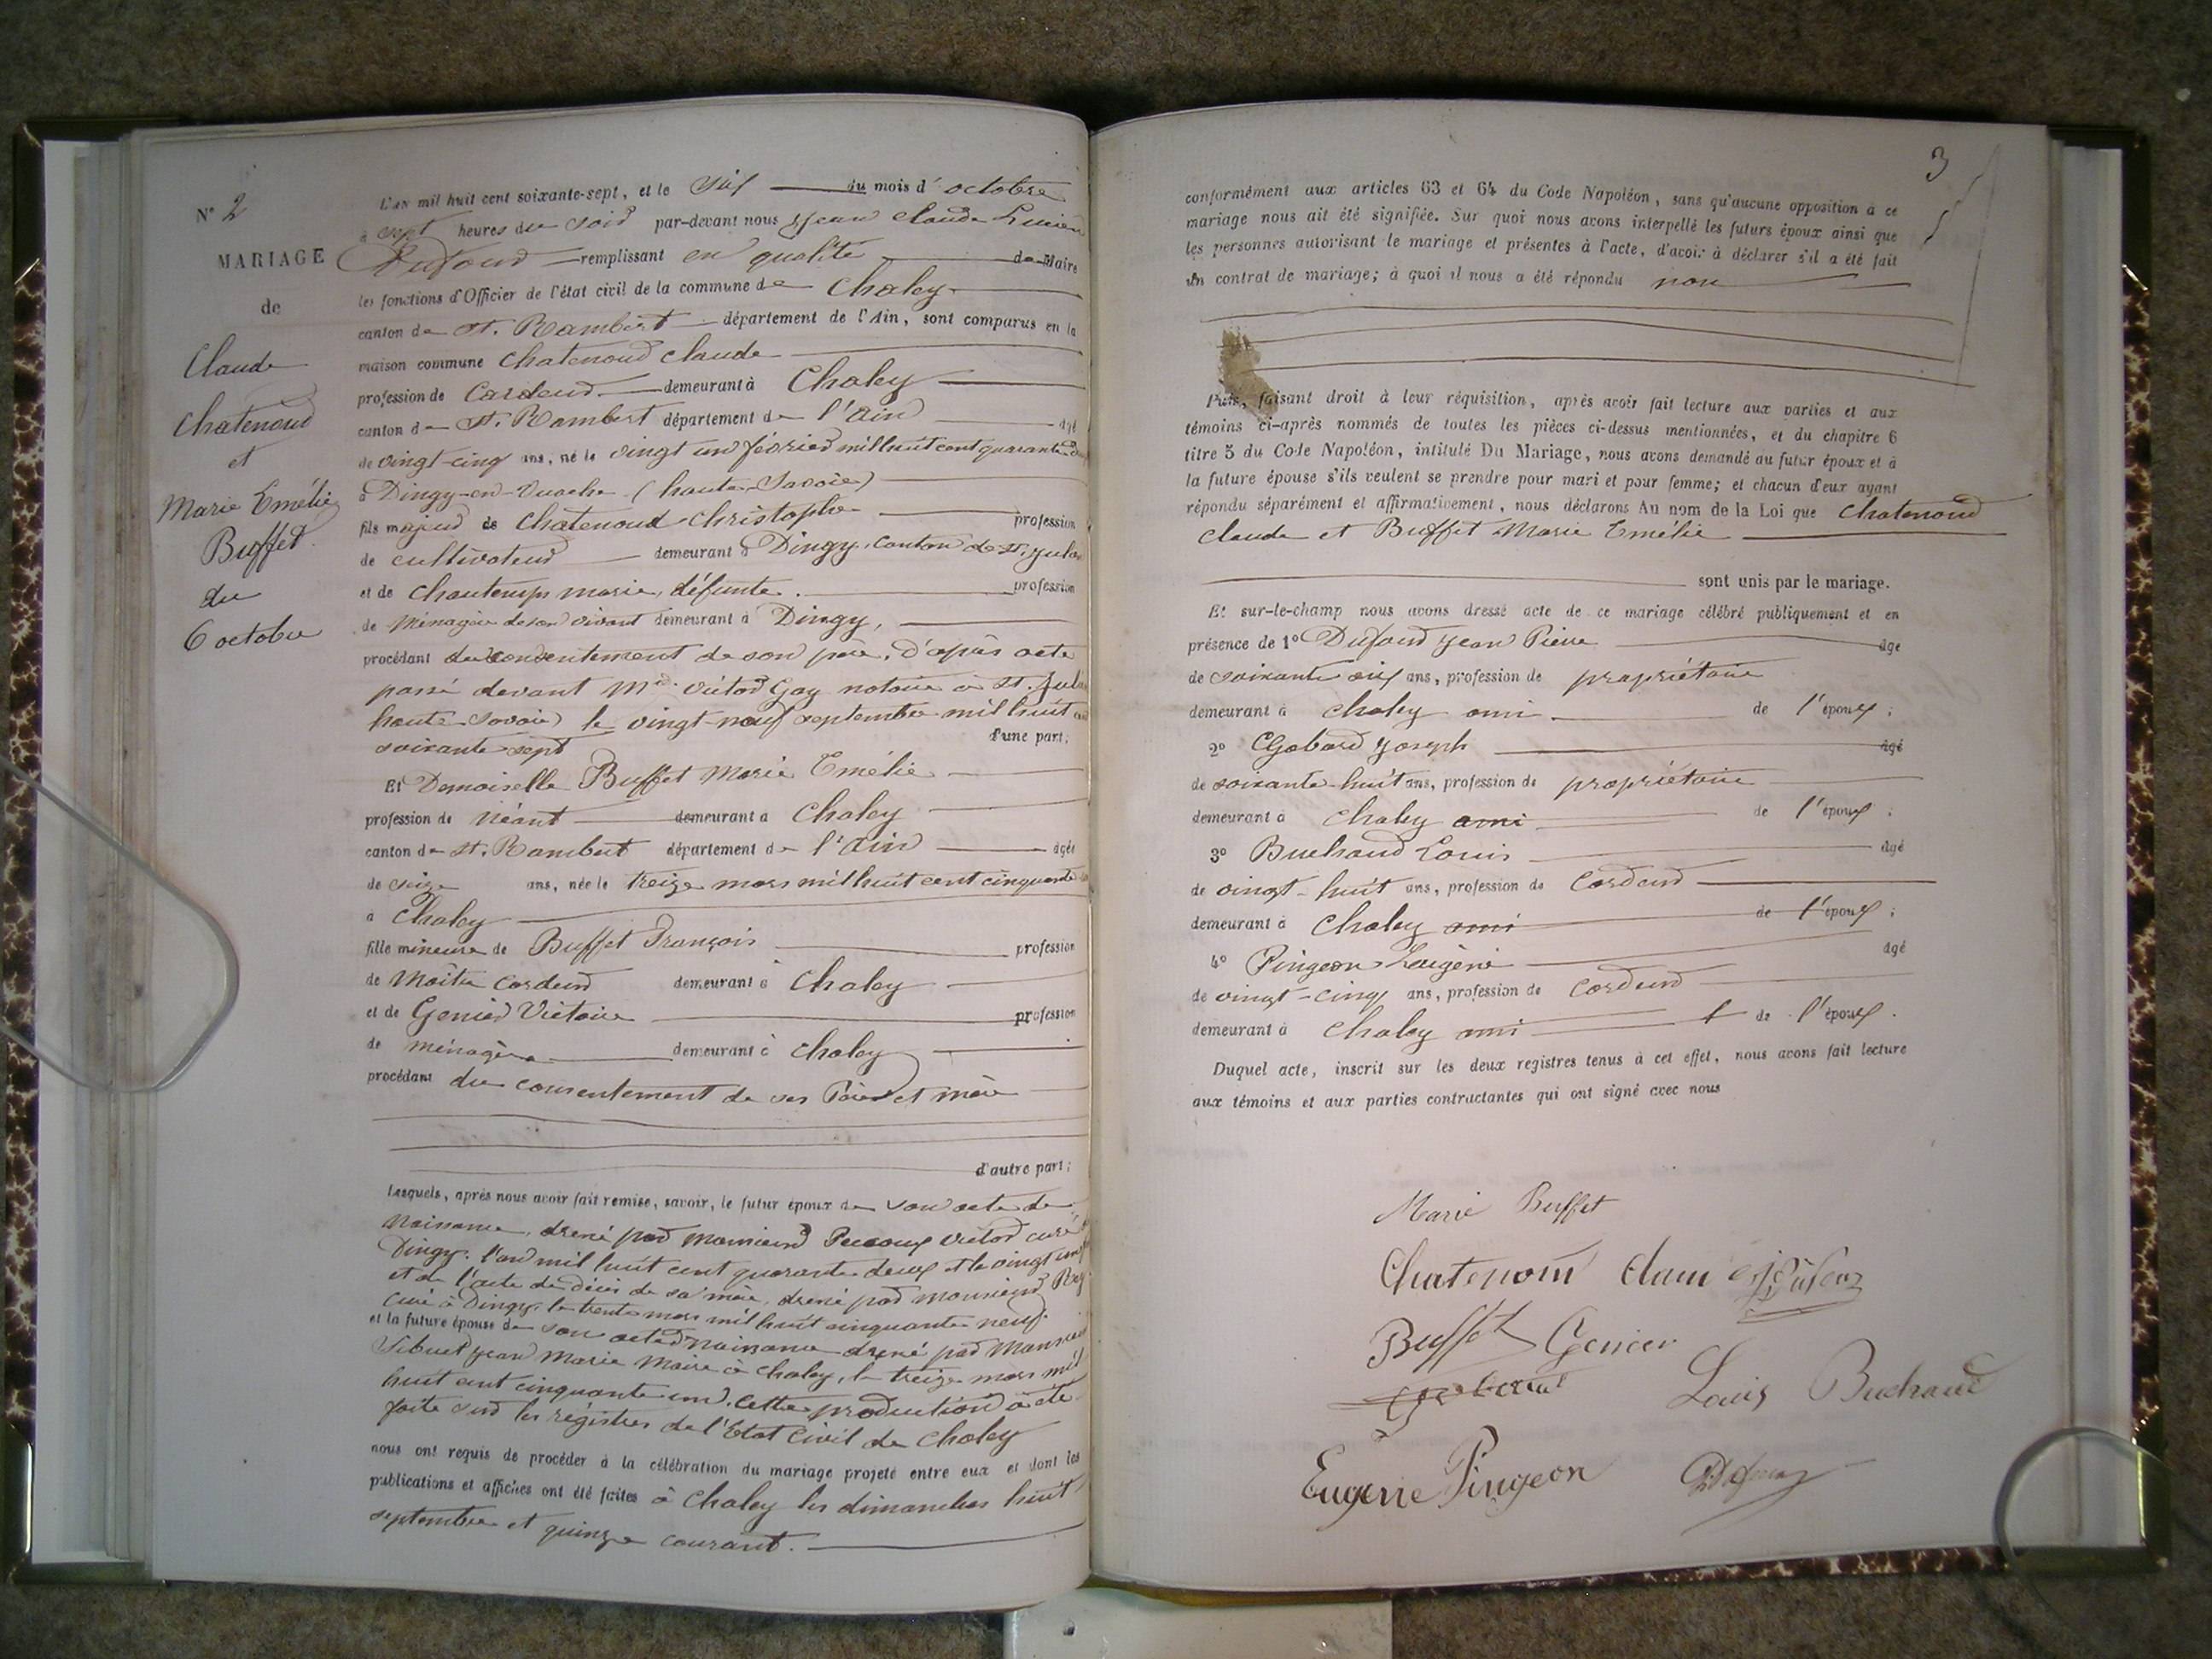 N° 2
MARIAGE
de
Claude
Chatenoud
et
Marie Emélie
Buffet
du
6 octobre
L'an mil huit cent soixante-sept, et le six du mois d'octobre
à sept heures du soir par-devant nous Jean Claude Lucien
Dufour remplissant en qualité de Maire
les fonctions d'Officier de l'état civil de la commune de Chaley
canton de St. Rambert département de l'Ain, sont comparus en la
maison commune Chatenoud Claude
profession de Cardeur demeurant à Chaley
canton de St. Rambert département de l'Ain âgé
de vingt-cinq ans, né le vingt un février mil huit cent quarante deux
à Dingy-en-Vuache (haute Savoie)
fils majeur de Chatenoud Christophe profession
de cultivateur demeurant à Dingy, canton de St. Julien
et de Chautemps marie, défunte. profession
de Ménagère de son vivant demeurant à Dingy,
procédant du consentement de son père, d'après acte
passé devant Me. Victor Gay notaire à St. Julien
haute Savoie) le vingt-neuf septembre mil huit cent
soixante sept d'une part;
Et Demoiselle Buffet Marie Emélie
profession de néant demeurant à Chaley
canton de St. Rambert département de l'Ain âgée
de seize ans, née le treize mars mil huit cent cinquante un
à Chaley
fille mineure de Buffet François profession
de Maître Cardeur demeurant à Chaley
et de Genier Victoire profession
de ménagère demeurant à Chaley
procédant du consentement de ses Père et mère
d'autre part;
Lesquels, après nous avoir fait remise, savoir, le futur époux de son acte de
Naissance, dressé par Monsieur Victor curé
Dingy, l'an mil huit cent quarante deux et le vingt un
et de l'acte de décès de sa mère, dressé par Monsieur
curé à Dingy, le trente mars mil huit cinquante neuf.
et la future épouse de son acte d naissance dressé par Monsieur
Sibuet Jean Marie Maire à Chaley, le treize mars mil
huit cent cinquante un. Cette production a été
faite sur les régistres de l'Etat Civil de Chaley
nous ont requis de procéder à la célébration du mariage projeté entre eux et dont les
publications et affiches ont été faites à Chaley les dimanches huit
septembre et quinze courant.
3
conformément aux articles 63 et 64 du Code Napoléon, sans qu'aucune opposition à ce
mariage nous ait été signifiée. Sur quoi nous avons interpellé les futurs époux ainsi que
les personnes autorisant le mariage et présentes à l'acte, d'avoir à déclarer s'il a été fait
un contrat de mariage; à quoi il nous a été répondu non
Puis, faisant droit à leur réquisition, après avoir fait lecture aux parties et aux
témoins ci-après nommés de toutes les pièces ci-dessus mentionnées, et du chapitre 6
titre 5 du Code Napoléon, intitulé Du Mariage, nous avons demandé au futur époux et à
la future épouse s'ils veulent se prendre pour mari et pour femme; et chacun d'eux ayant
répondu séparément et affirmativement, nous déclarons Au nom de la Loi que Chatenoud
Claude et Buffet Marie Emélie
sont unis par le mariage.
Et sur-le-champ nous avons dressé acte de ce mariage célébré publiquement et en
présence de 1° Dufour Jean Pierre âge
de soixante six ans, profession de propriétaire
demeurant à Chaley ami de l'époux;
2° Gobard Joseph âgé
de soixante-huit ans, profession de propriétaire
demeurant à Chaley ami de l'époux;
3° Buchaud Louis âgé
de vingt-huit ans, profession de Cardeur
demeurant à Chaley ami de l'époux;
4° Pingeon Eugène âgé
de vingt-cinq ans, profession de Cardeur
demeurant à Chaley ami de l'époux.
Duquel acte, inscrit sur les deux registres tenus à cet effet, nous avons fait lecture
aux témoins et aux parties contractantes qui ont signé avec nous
Marie Buffet
Chatenoud
Buffet Genier
Louis Buchaud
Eugene Pingeon